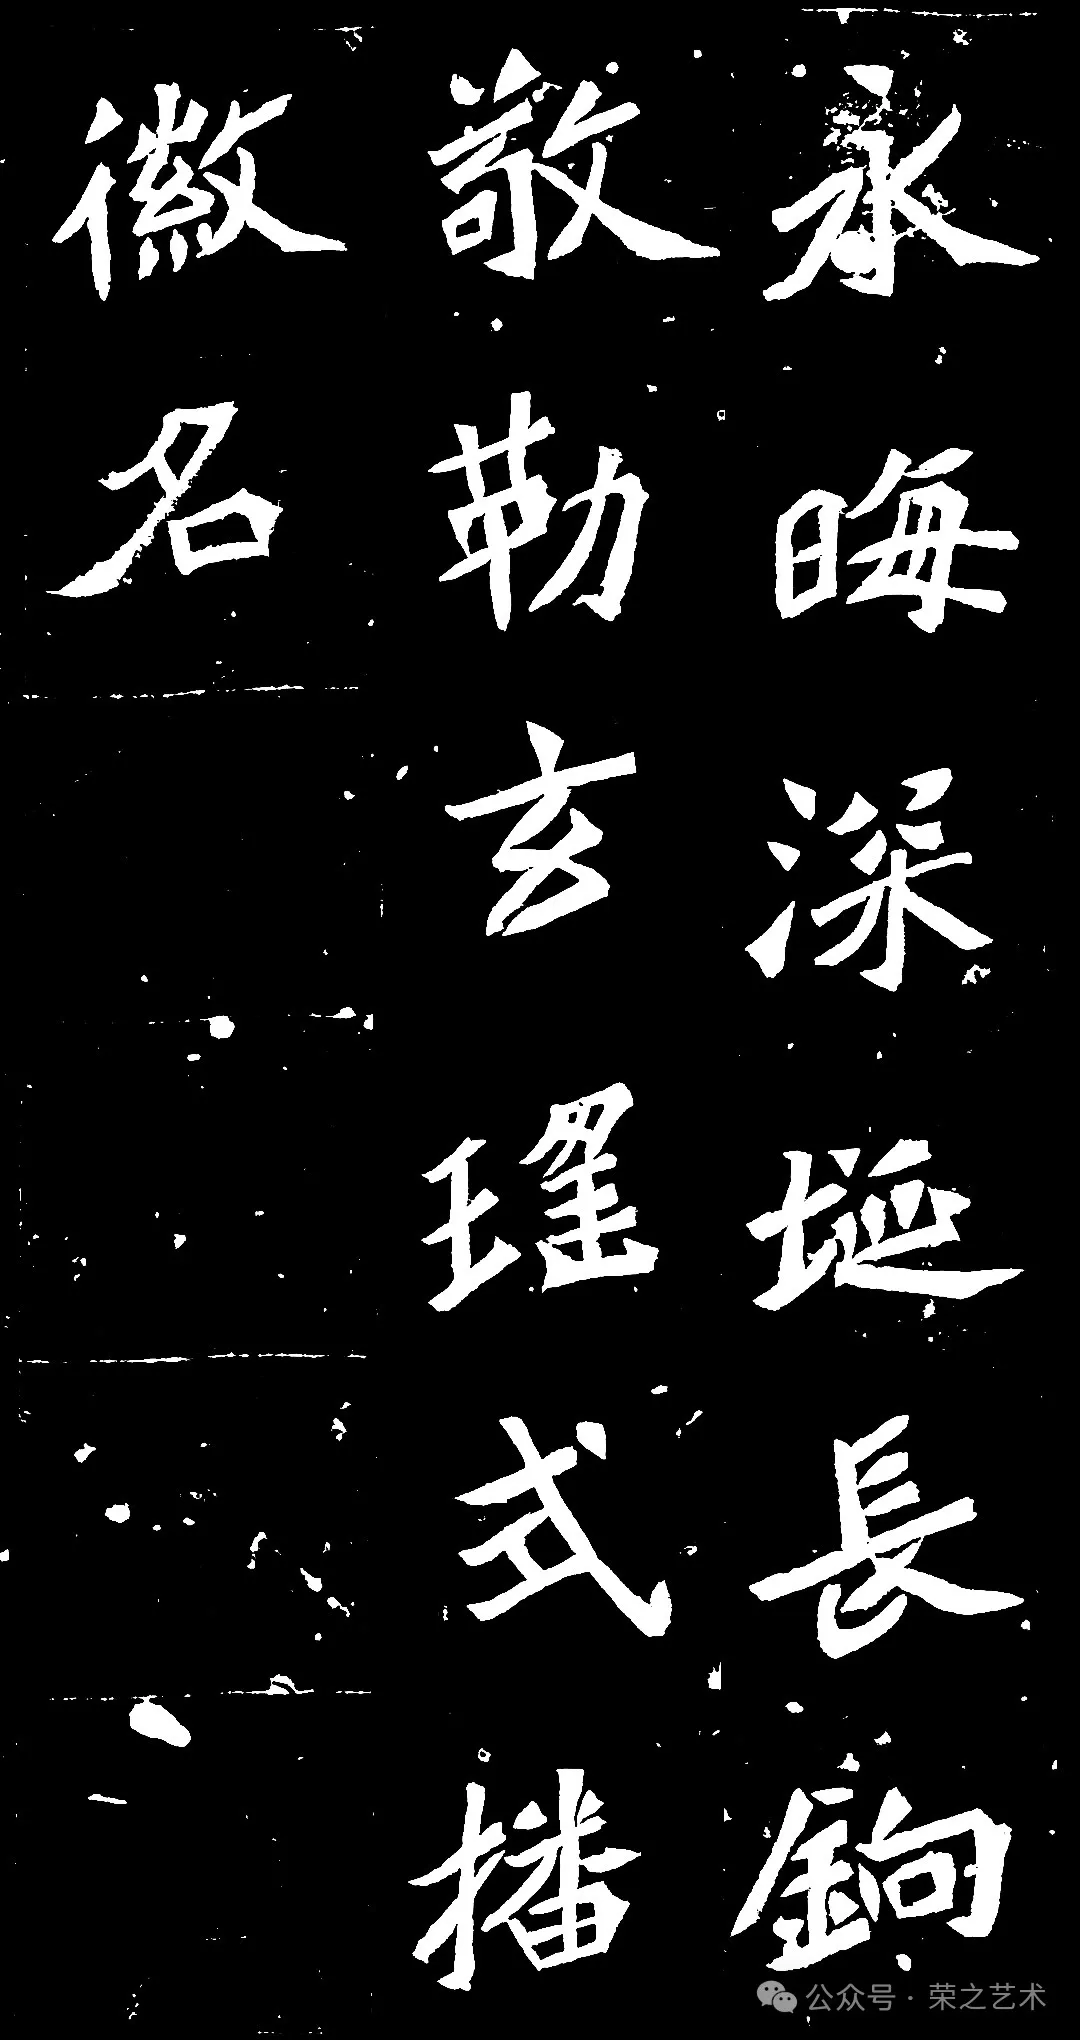 永晦深埏長
敬勒玄瑤式播
徽名
公众号·荣之艺术